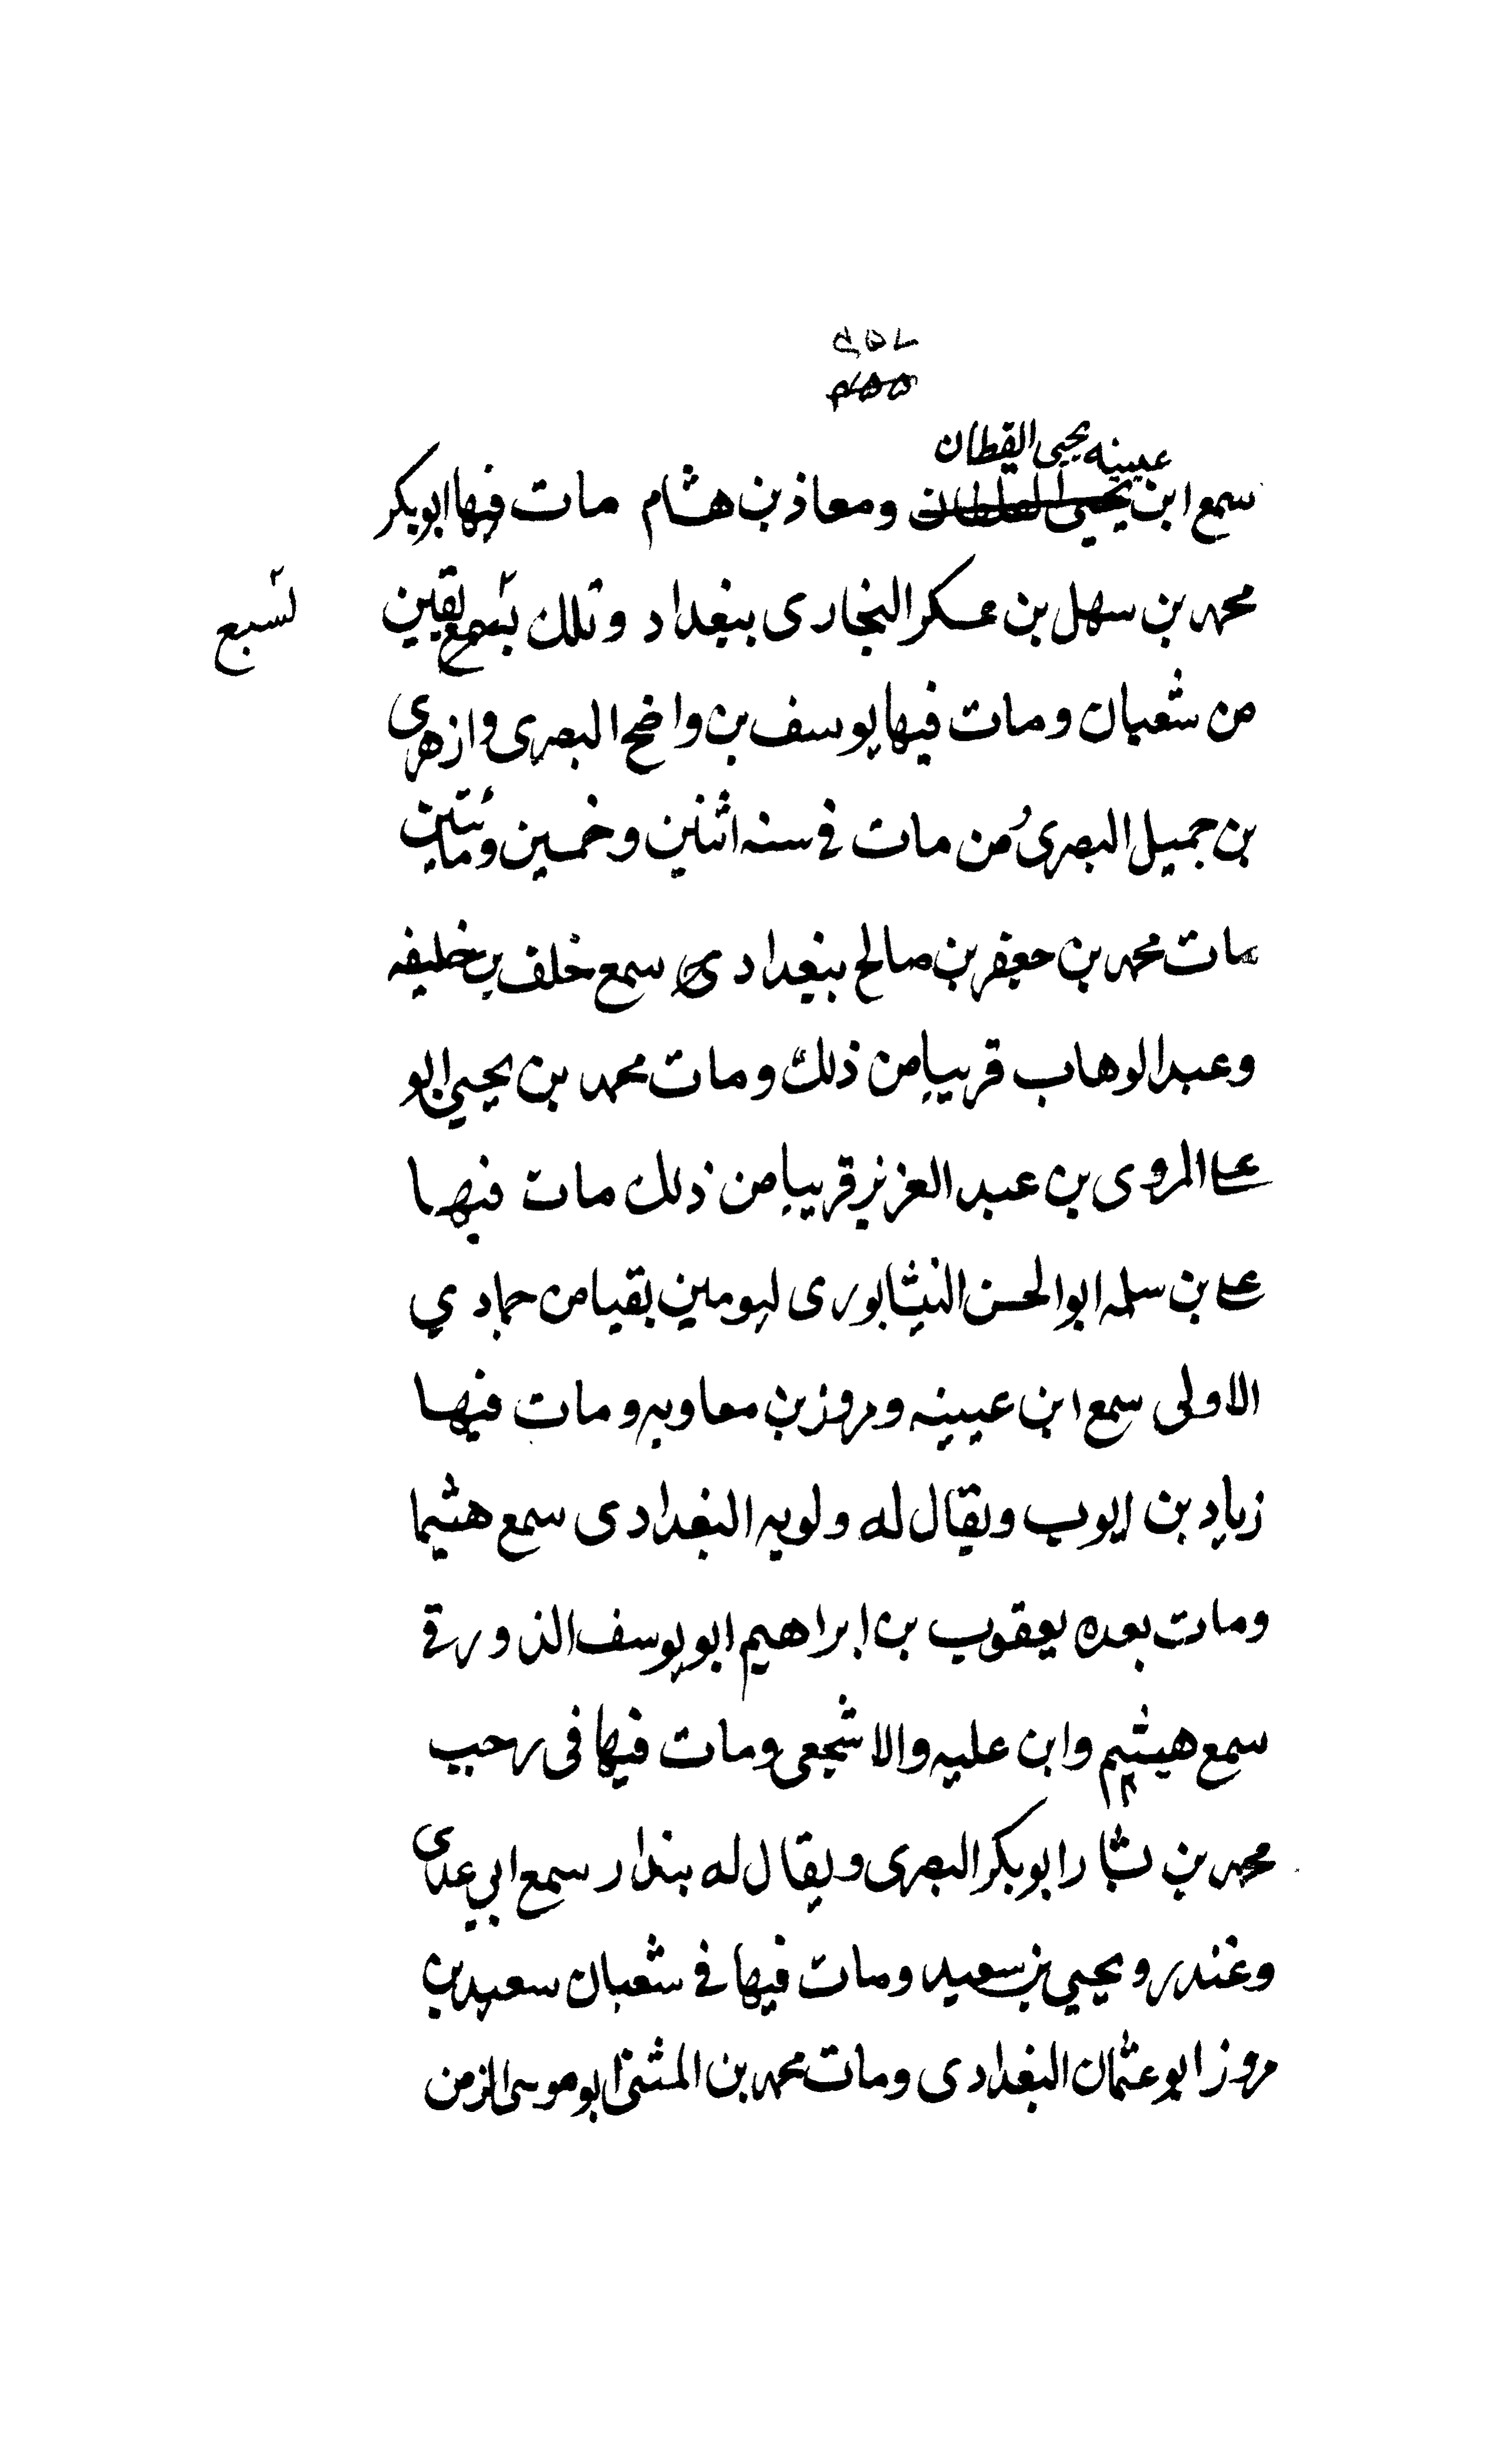 عيينه يحيى القطان
سمع ابن يحيى القطان ومعاذ بن هشام مات فيها ابو بكر
محمد بن سهل بن عسكر البخارى ببغداد وتلك بسبع بقين
لسبع
من شعبان ومات فيها يوسف بن واضح البصرى وازهرى
بن جميل البصرى من مات في سنه اثنين وخمسين ومائتين
مات محمد بن جعفر بن صالح ببغدادى سمع خلف بن خليفه
وعبد الوهاب قريبا من ذلك ومات محمد بن يحيى ابو
على المروى بن عبد العزيز قريبا من ذلك مات فيها
على بن سلمه ابو الحسن النيثابورى ليومين بقيا من جمادي
الاولى سمع ابن عيينه ومروز بن معاويه ومات فيها
زياد بن ايوب ويقال له ولويه البغدادى سمع هشيما
ومات بعده يعقوب بن ابراهيم ابو يوسف الذورقي
سمع هيشيم وابن عليه والاشجعى ومات فيها فى رجب
محمد بن بشار ابو بكر البصرى ويقال له بندار سمع ابي عدى
وغندر ويحيي بن سعيد ومات فيها في شعبان سعيد بن
مروز ابو عثمان البغدادى ومات محمد بن المثنى ابو موسى الزمن